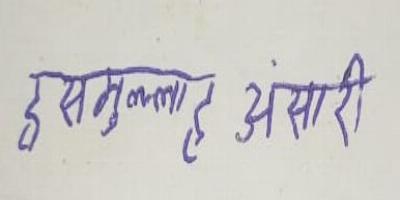 इसमुल्लाह अंसारी